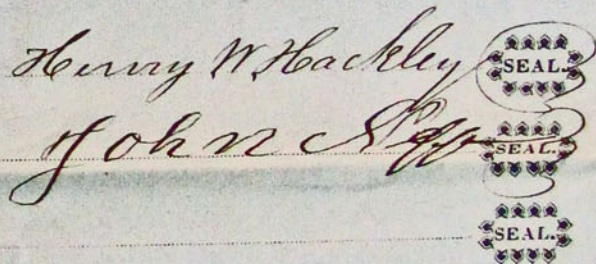 Henry W. Hackley SEAL.
John SEAL.
SEAL.